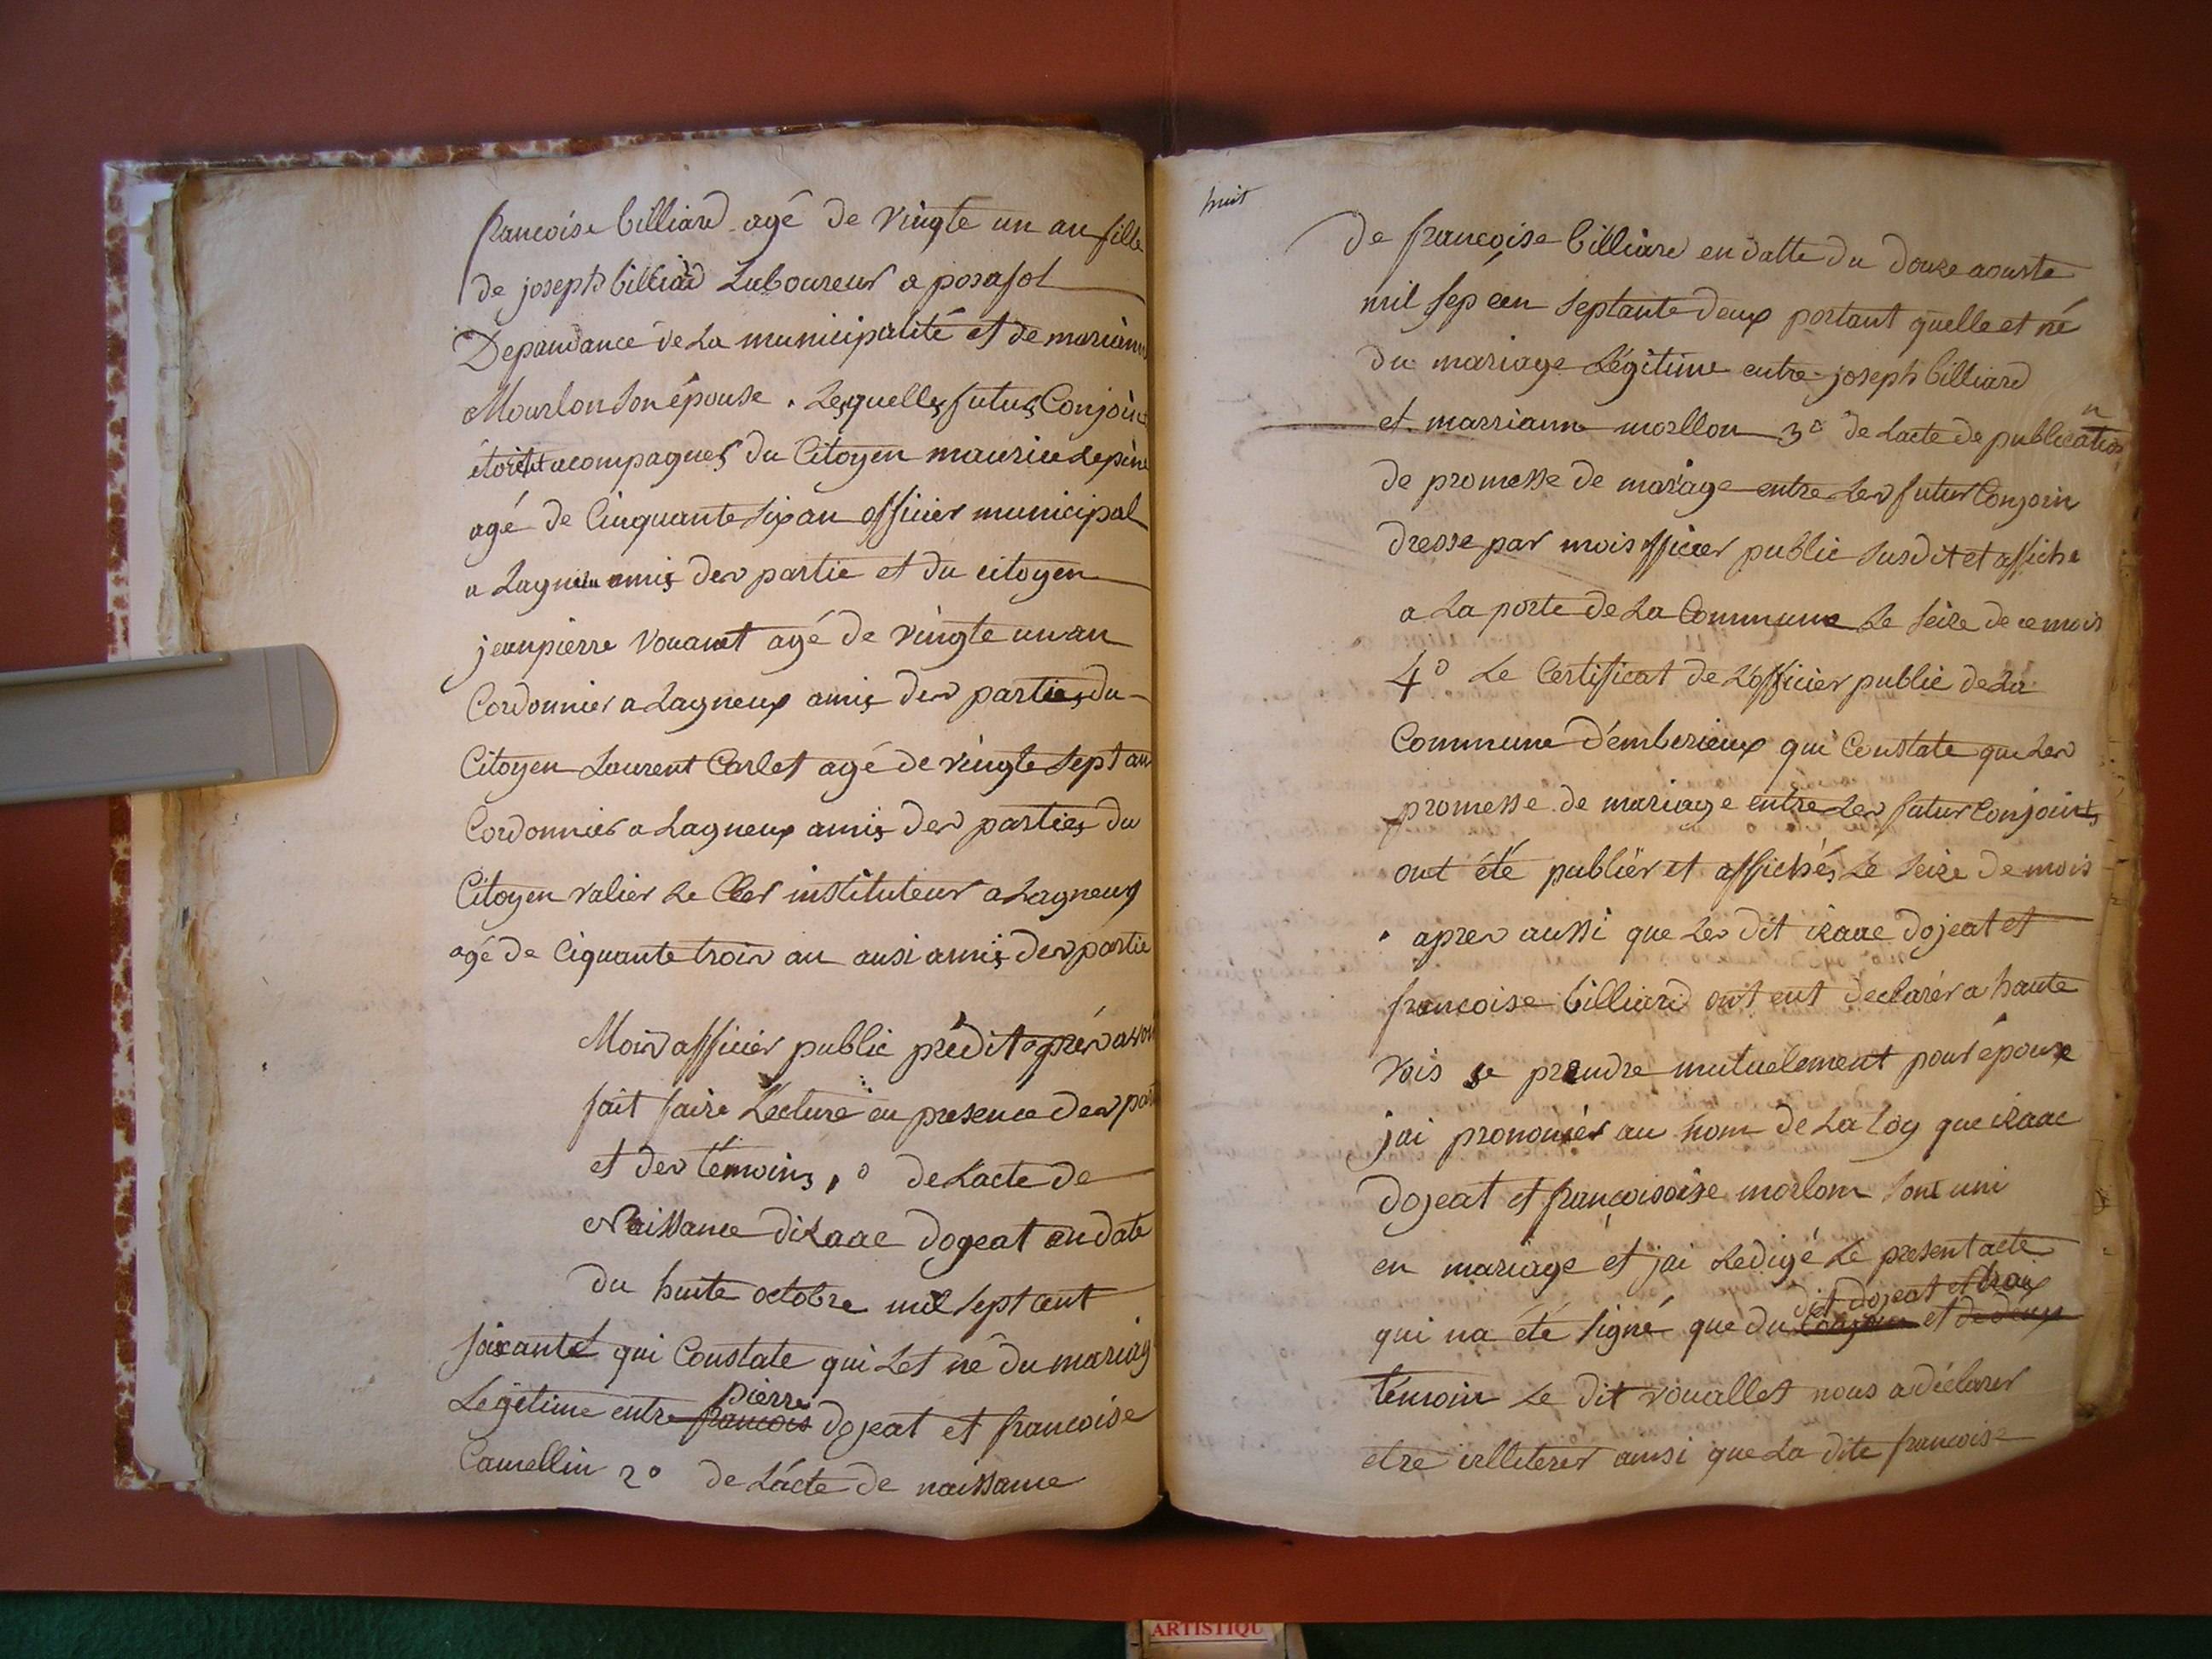 francoise billiard agé de vingte un an fille
de joseph billiard Laboureur a posafol
Depandance de La municipalité et de mariann
Mourlon son épouse. Lesquelles futurs Conjoin
étoient acompagnes du Citoyen maurice Lepine
agé de Cinquante six an officier municipal
a Lagnieu amis des partie et du citoyen
jeanpierre vouaret agé de vingte un an
Cordonnier a Lagneux amis des parties du
Citoyen Laurent Carlet agé de vingte sept an
Cordonnier a Lagneux amis des parties du
Citoyen valier Le Cler instituteur a Lagneux
agé de Ciquante trois an ausi amis des partie
Mois officier public prédit aprés avoir
fait faire Lecture en presence des par
et des témoins 1o de Lacte de
Naissance dizaac dogeat en date
du huite octobre mil sept cent
soixante qui Constate qui Let né du mariag
Légitime entre francois pierre dojeat et francoise
Camellin 2o de Lácte de naissance
huit
de francoise billiard en datte du douze aouste
mil sep cen septante deux portant quelle et né
du mariage Légitime entre joseph billiard
et marriann morllon 3o de Lacte de publication
de promesse de mariage entre Les futur Conjoin
dresse par mois officier public susdit et affiche
a La porte de La Commune Le seize de ce mois
4o Le Certificat de Lofficier public de La
Commune d'emberieux qui Constate que Les
promesse de mariage entre Les futur Conjoints
ont été publiér et affichés Le seize de mois
apres aussi que Les dit izaac dojeat et
francoise billiard ont eut declarér a haute
vois se prendre mutuelement pour épouse
jai prononcér au nom de La Loy que izaac
dojeat et francoisoise morlom sont uni
en mariage et jai Redigé Le present acte
dit dojeat et trois
qui na été signé que du Conjoin et de deux
témoin Le dit vouallet nous a déclarer
etre illiterer ainsi que La dite francoise
ARTISTIQU